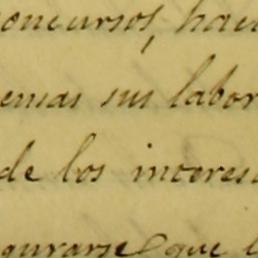 concursos, hac
emas sus labor
de los interes
gurarse que l